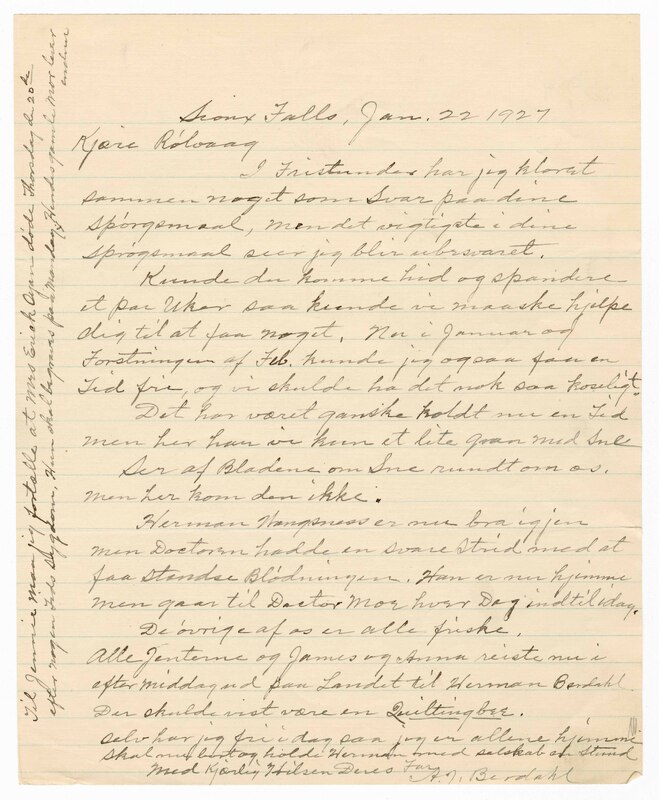 Sioux Falls, Jan. 22 1927
Kjære Rölvaag
I Fristunder har jeg kloret
sammen noget som Svar paa dine
Spórgsmaal, men det vigtigste i dine
sprógsmaal seer jeg blir ubesvaret.
Kunde du komme hid og spandere
et par Uker saa kunde vi maaske hjelpe
dig til at faa noget. Nu i Januar og
Forstningen af Feb. kunde jeg ogsaa faa en
Tid fri, og vi skulde ha det nok saa koseligt.
Det har været ganske koldt nu en Tid
men her har vi kun et lite graan med Sne
Ser af Bladene om Sne rundt om os.
men her kom den ikke.
Herman Wangsness er nu bra igjen
men Doctoren hadde en svare Strid med at
faa standse Blödningen. Han er nu hjemme
men gaar til Doctor Moe hver Dag indtil idag.
De övrige af os er alle friske.
Alle Jenterne og James og Anna reiste nu i
eftermiddag ud paa Landet til Herman Berdahl
Der skulde vist være en Quiltingbee.
selv har jeg fri i dag saa jeg er allene hjemme
skal nu bort og holde Herman med selskab en stund
Med Kjærlig Hilsen Deres Far
A. J. Berdahl
Til Jennie maa jeg fortælle at Mrs Erick döde Thorsdag d. 20de
efter nogen Tids Sygdom, Hun skal begraves paa Mandag, Hendes gamle Mor lever
endnu